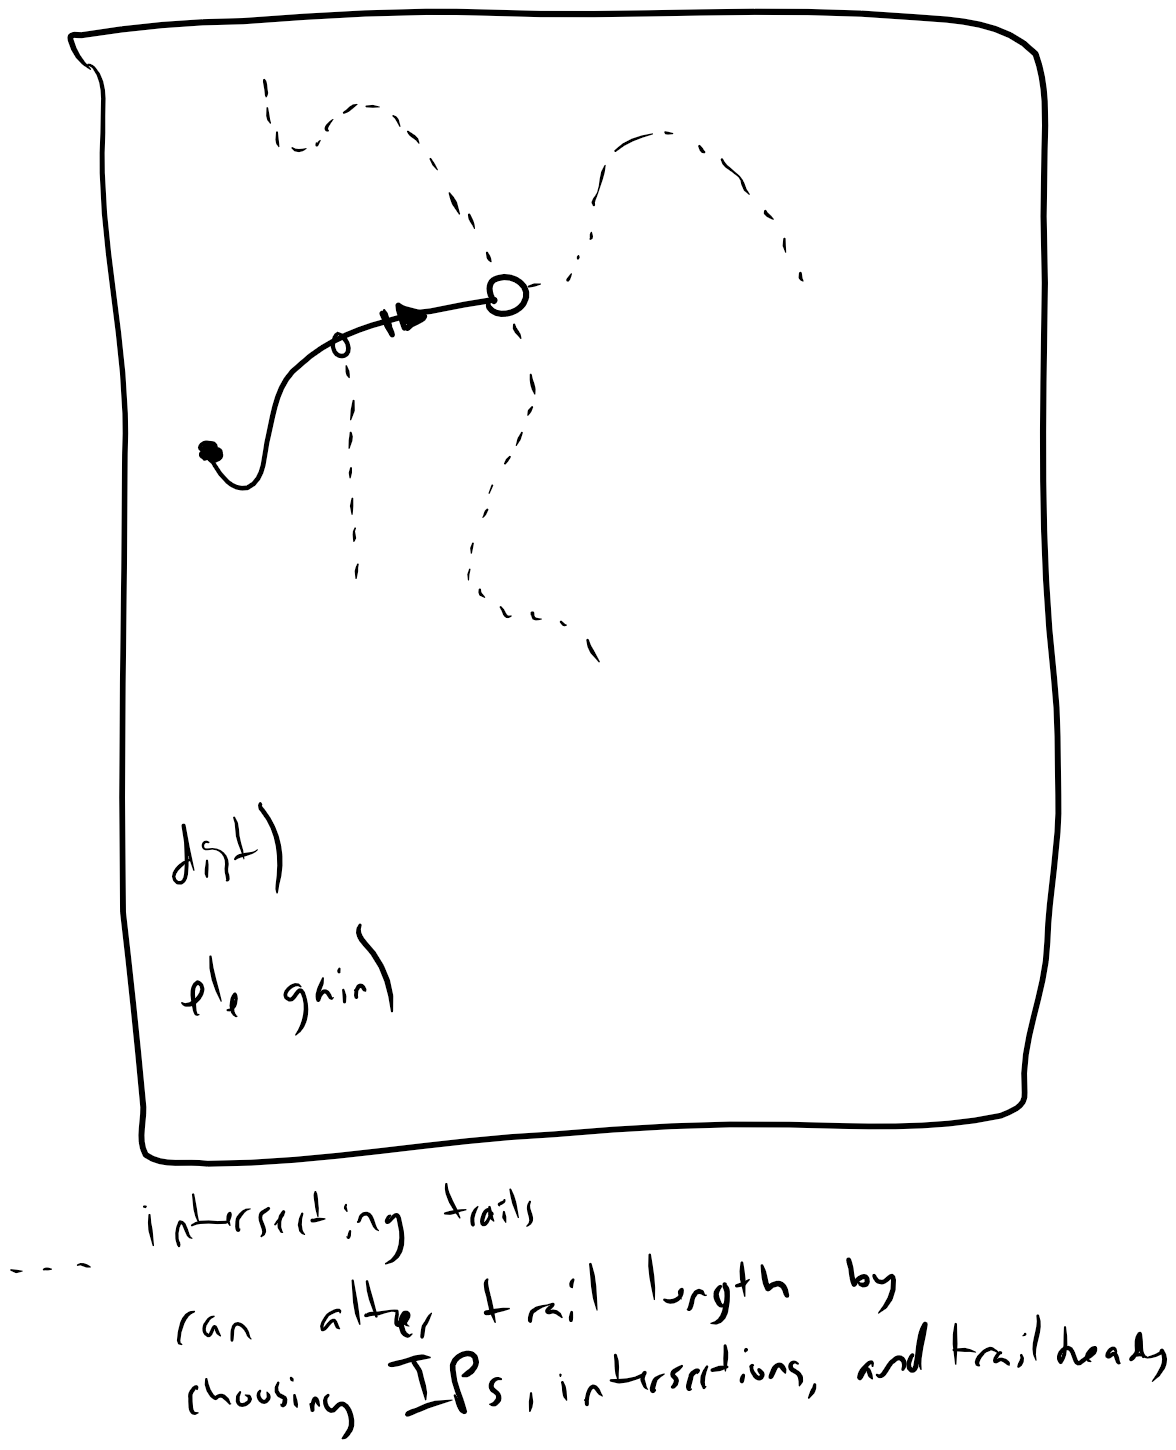 dist)
ele gain)
intersecting trails
can alter trail length by
choosing IPs, intersections, and trailheads